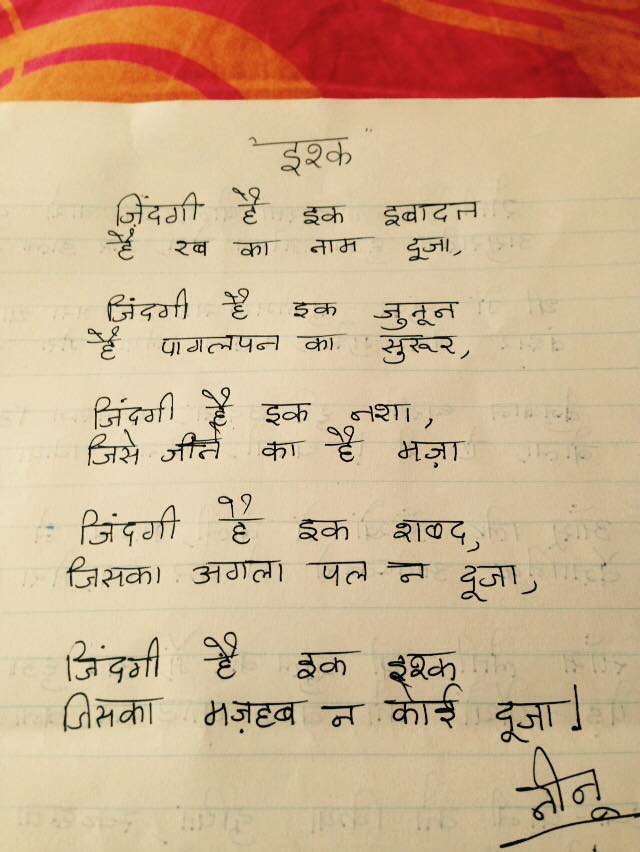 "इश्क"
ज़िंदगी है इक इबादत
है रब का नाम दूजा,
ज़िंदगी है इक जुनून
है पागलपन का सुरूर,
ज़िंदगी है इक नशा,
जिसे जीने का है मज़ा
ज़िंदगी है इक शब्द,
जिसका अगला पल न दूजा,
ज़िंदगी है इक इश्क
जिसका मज़हब न कोई दूजा!
नीनू